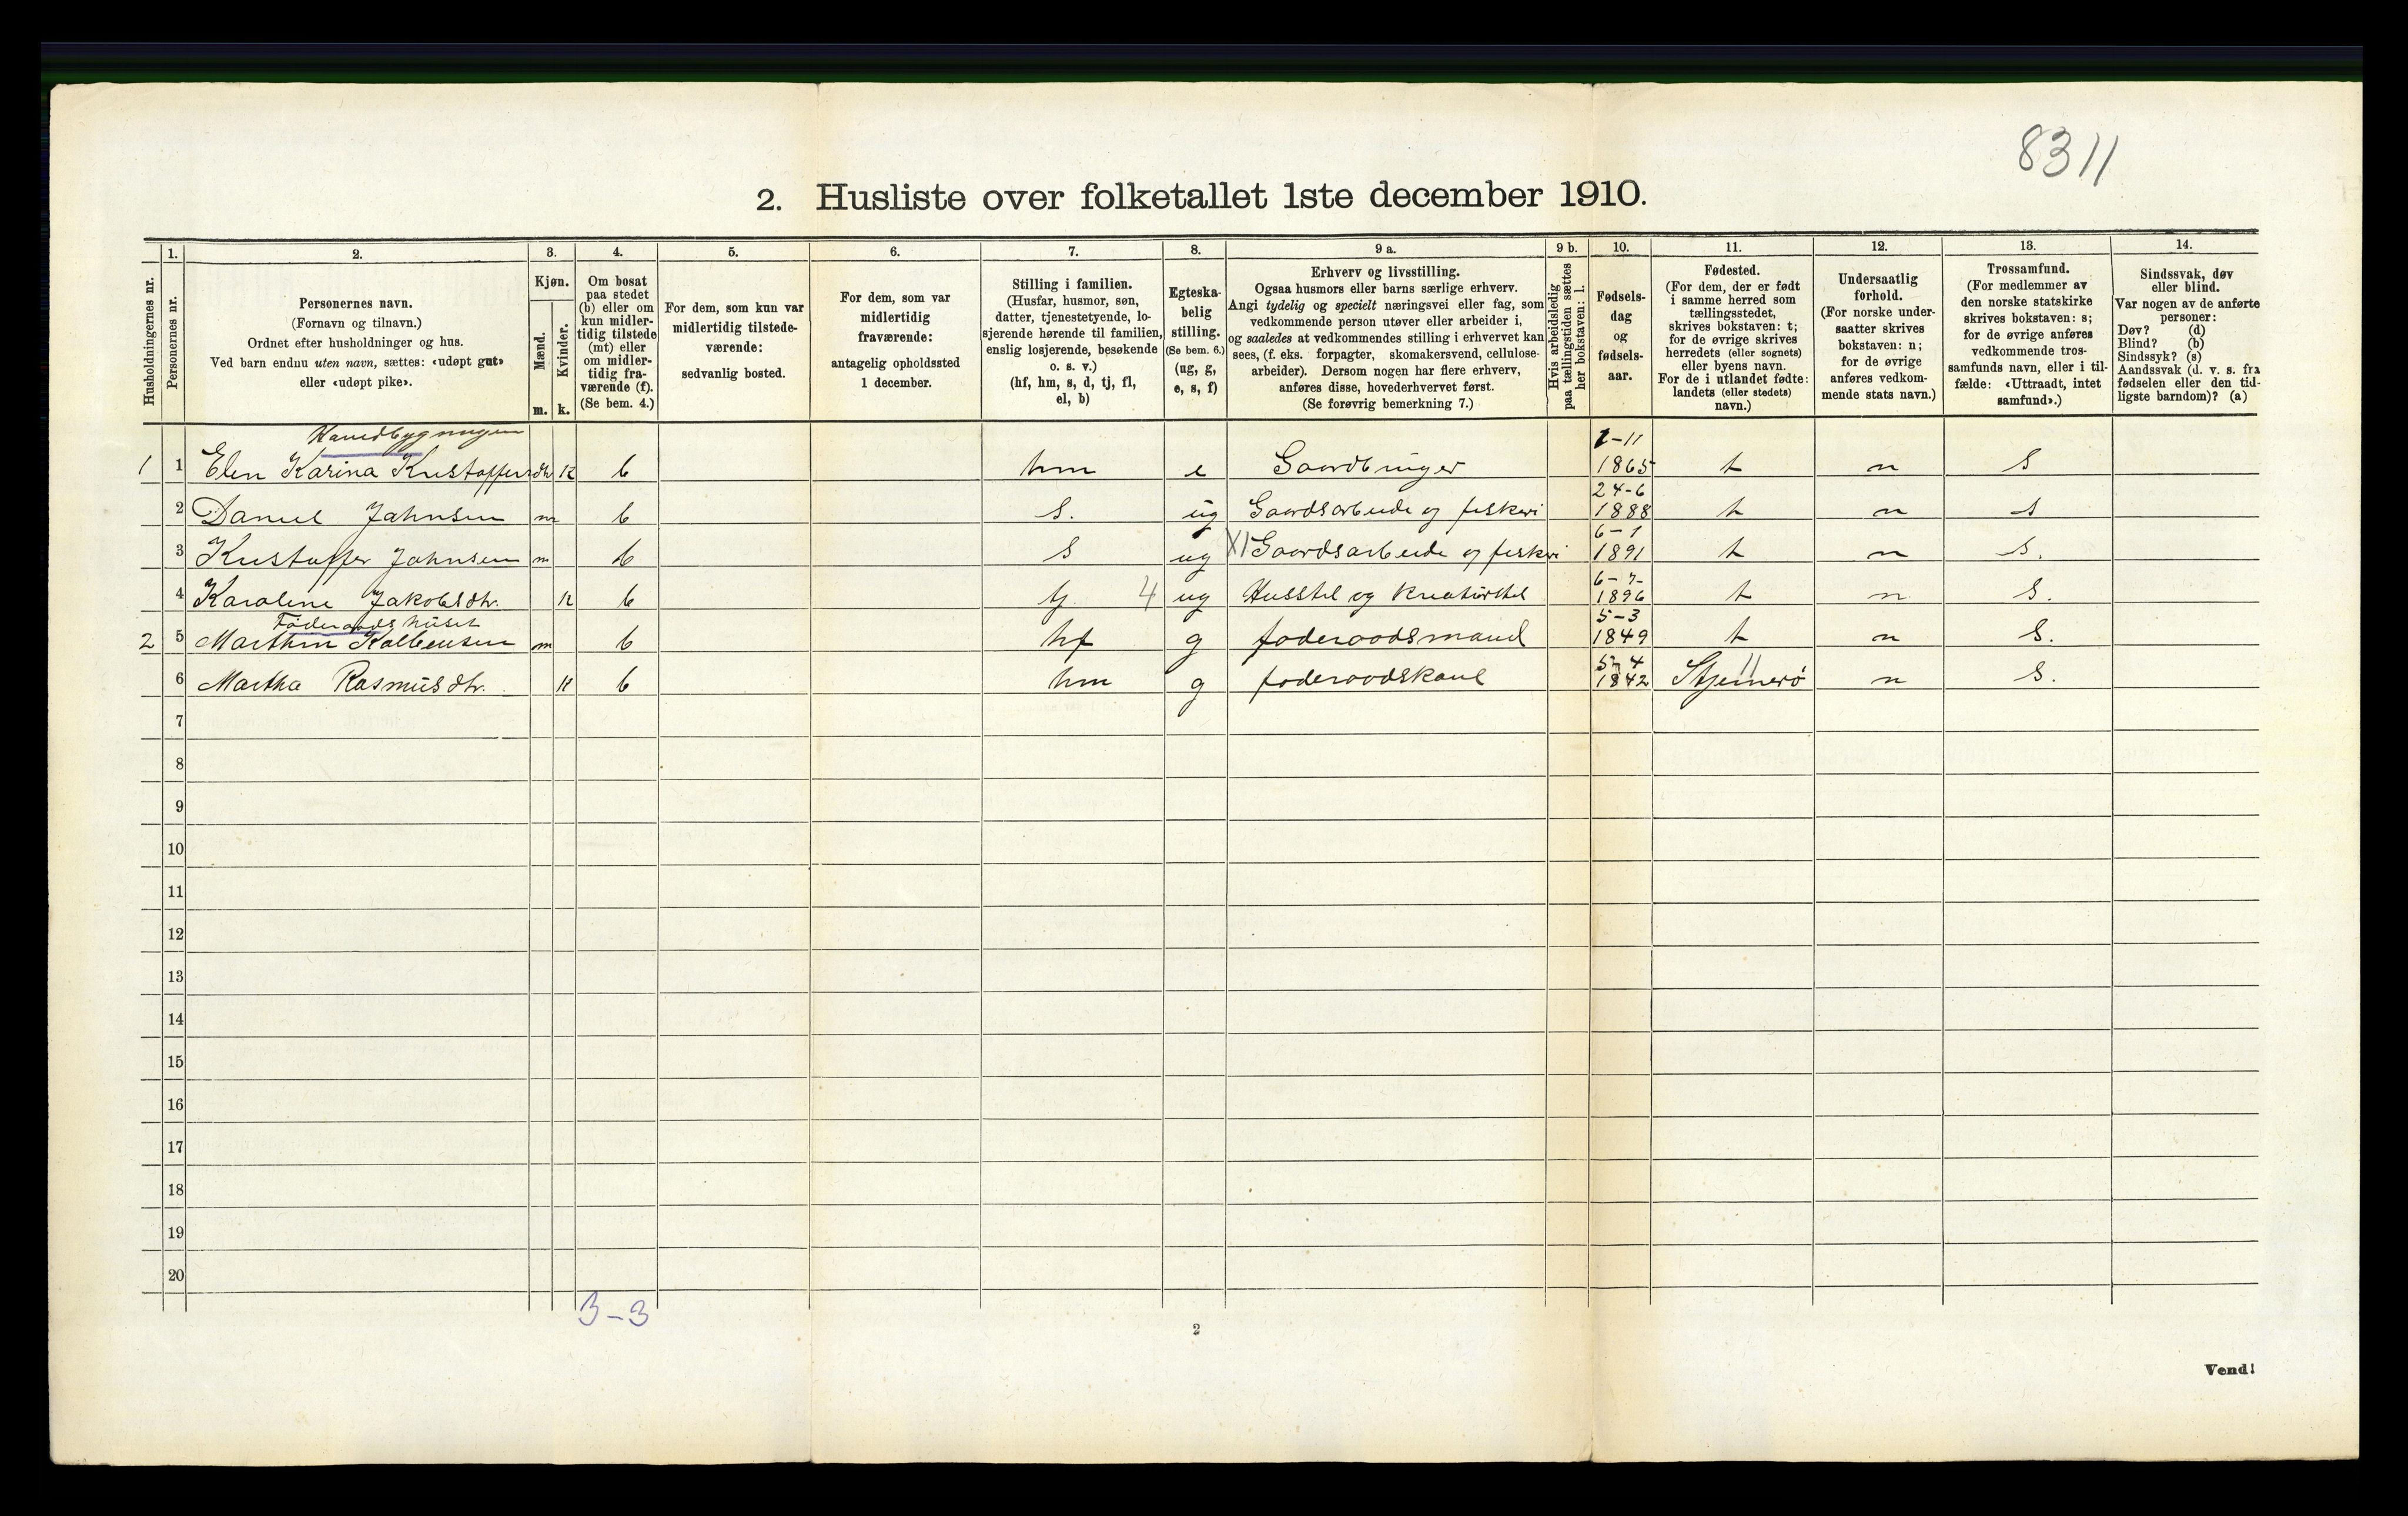 8311
2. Husliste over folketallet 1ste december 1910.
Husholdningernes nr.
1.
Personernes nr.
2.
Personernes navn.
(Fornavn og tilnavn.)
Ordnet efter husholdninger og hus.
Ved barn endnu uten navn, sættes: «udøpt gut»
eller «udøpt pike».
3.
Kjøn.
Mænd.
Kvinder.
m. k.
4.
Om bosat
paa stedet
(b) eller om
kun midler-
tidig tilstede
(mt) eller
om midler-
tidig fra-
værende (f).
(Se bem. 4.)
5.
For dem, som kun var
midlertidig tilstede-
værende:
sedvanlig bosted.
6.
For dem, som var
midlertidig
fraværende:
antagelig opholdssted
1 december.
7.
Stilling i familien.
(Husfar, husmor, søn,
datter, tjenestetyende, lo-
sjerende hørende til familien,
enslig losjerende, besøkende
o. s. v.)
(hf, hm, s, d, tj, fl,
el, b)
8.
Egteska-
belig
stilling.
(Se bem. 6.)
(ug, g,
e, s, f)
9 a.
Erhverv og livsstilling.
Ogsaa husmors eller barns særlige erhverv.
Angi tydelig og specielt næringsvei eller fag, som
vedkommende person utøver eller arbeider i,
og saaledes at vedkommendes stilling i erhvervet kan
sees, (f. eks. forpagter, skomakersvend, cellulose-
arbeider). Dersom nogen har flere erhverv,
anføres disse, hovederhvervet først.
(Se forøvrig bemerkning 7.)
9 b.
Hvis arbeidsledig
paa tællingstiden sættes
her bokstaven: l.
10.
Fødsels-
dag
og
fødsels-
aar.
11.
Fødested.
(For dem, der er født
i samme herred som
tællingsstedet,
skrives bokstaven: t;
for de øvrige skrives
herredets (eller sognets)
eller byens navn.
For de i utlandet fødte:
landets (eller stedets)
navn.)
12.
Undersaatlig
forhold.
(For norske under-
saatter skrives
bokstaven: n;
for de øvrige
anføres vedkom-
mende stats navn.)
13.
Trossamfund.
(For medlemmer av
den norske statskirke
skrives bokstaven: s;
for de øvrige anføres
vedkommende tros-
samfunds navn, eller i til-
fælde: «Uttraadt, intet
samfund».)
14.
Sindssvak, døv
eller blind.
Var nogen av de anførte
personer:
Døv? (d)
Blind? (b)
Sindssyk? (s)
Aandssvak (d. v. s. fra
fødselen eller den tid-
ligste barndom)? (a)
Hovedbygningen
1 1 Elen Karina Kristoffersdtr k b hm e Gaardbruger 1-11 1865 t n S
2 Daniel Jahnsen m b S. ug Gaardsarbeide og fiskeri 24-6 1888 t n s
3 Kristoffer Jahnsen m b S ug X1 Gaardsarbeide og fiskeri 6-1 1891 t n S.
4 Karoline Jakobsdtr. k b tj. 4 ug Husstel og kreaturstel 6-7- 1896 t n S.
Føderaads huset
2 5 Marthin Kolbensen m b hf g føderaadsmand 5-3 1849 t n S.
6 Martha Rasmusdtr. k b hm g føderaadskone 1842 11 n S.
7
8
9
10
11
12
13
14
15
16
17
18
19
20
3-3
2
Vend!